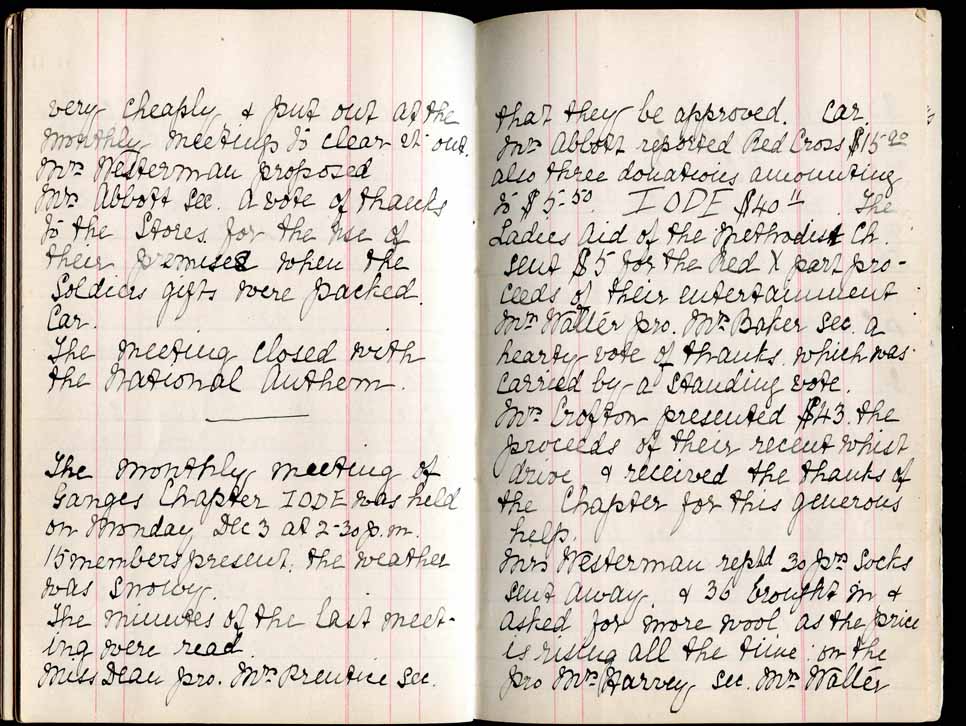 very cheaply & put out at the
monthly meetings to clear it out.
Mrs Westerman proposed
Mrs Abbott sec. a vote of thanks
to the Stores for the use of
their premises when the
Soldiers gifts were packed.
Car.
The meeting closed with
the National Anthem.
The monthly meeting of
Ganges Chapter IODE was held
on Monday Dec 3 at 2-30 p.m.
15 members present. the weather
was snowy.
The minutes of the last meet-
ing were read
Miss Dean pro. Mrs Prentice sec.
that they be approved. Car.
Mrs Abbott reported Red Cross $15.20
also three donations amounting
to $5.50. IODE $40.11. The
Ladies Aid of the Methodist Ch.
sent $5 for the Red X part pro-
ceeds of their entertainment
Mrs Walter pro. Mrs Baker sec. a
hearty vote of thanks. which was
carried by a standing vote.
Mrs Crofton presented $43. the
proceeds of their recent whist
drive & received the thanks of
the Chapter for this generous
help.
Mrs Westerman reptd 30 prs Socks
sent away. & 36 brought in &
asked for more wool as the price
is rising all the time. on the
pro Mrs Harvey sec. Mrs Walter